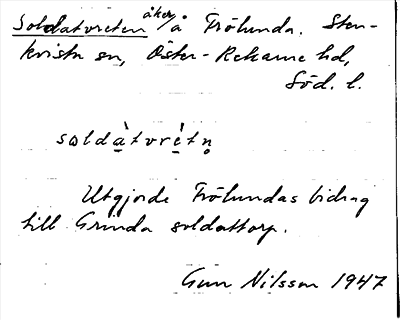 Soldatvreten åker å Frölunda. Sten-
kvista sn, Öster-Rekarne hd,
Söd. l.
soldàtvrètn̥
Utgjorde Frölundas bidrag
till Grinda soldattorp.
Gun Nilsson 1947